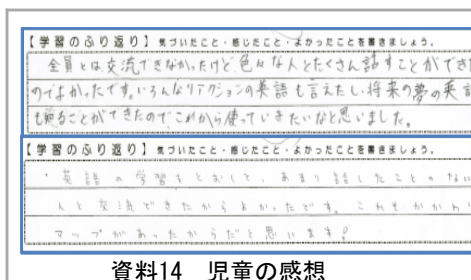 【学習のふり返り】 気づいたこと・感じたこと・よかったことを書きましょう。
全員とは交流できなかったけど色々な人とたくさん話すことができた
のでよかったです。いろんなリアクションの英語も言えたし将来の夢の英語
も知ることができたので、これから使っていきたいなと思いました。
【学習のふり返り】 気づいたこと・感じたこと・よかったことを書きましょう。
・英語の学習をとおして、あまり話したことのない
人と交流できたからよかったです。これもかかわ
マップがあったからだと思います!
資料14 児童の感想